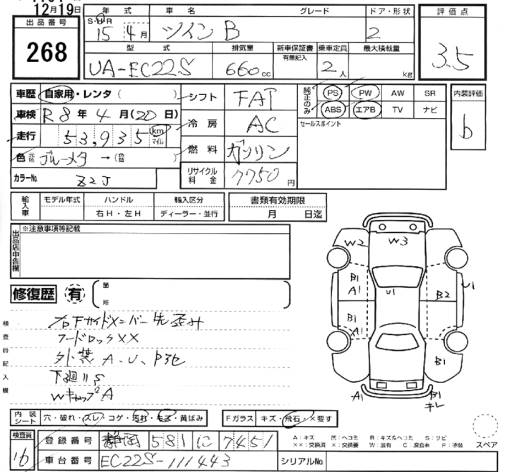 12月19日
出品番号 268
年式 15年 4月
車名 ツイン B
グレード
ドア・形状 2
評価点 3.5
型式 UA-EC22S
排気量 660cc
新車保証書 有無記入
乗車定員 2人
最大積載量 kg
車歴 自家用・レンタ( )
シフト FAT
純正のみ PS PW AW SR
ABS エアB TV ナビ
内装評価 b
車検 R8年 4月(20日)
冷房 AC
セールスポイント
走行 53,935 km マイル
燃料 ガソリン
色 ブルーメタ → ( )
リサイクル料金 7750円
カラーNo. Z2J
輸入車 モデル年式 ハンドル 右H・左H 輸入区分 ディーラー・並行
書類有効期限 月 日迄
出品店申告欄 ※注意事項等記載
修復歴 有 箇所
検査員記入欄
左Fサイドメンバー先歪み
フードロックXX
外装A、U、P他
下廻りS
WキャップA
W2 W3
B1 A1 U1 B2 U1
B1 A1 B1
B1
A1 B1 キレ
内装シート 穴・破れ・スレ・コゲ・汚れ・モケ・黄ばみ
Fガラス キズ・飛石・X要す
スペア
検査員 16
登録番号 静岡 581 に 7451
車台番号 EC22S-111443
シリアルNo.